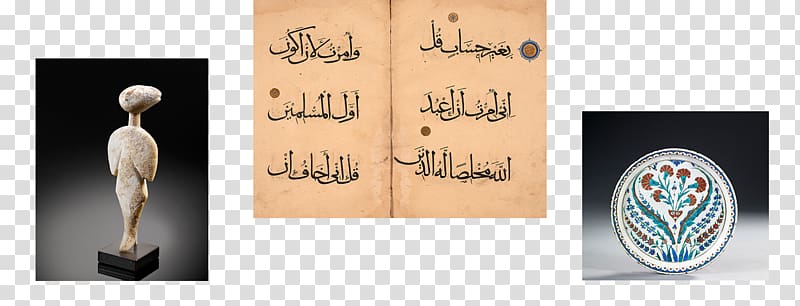 بغير حساب قل
إني أمرت أن أعبد
الله مخلصا له الدين
وأمرت لأن أكون
أول المسلمين
قل إني أخاف إن